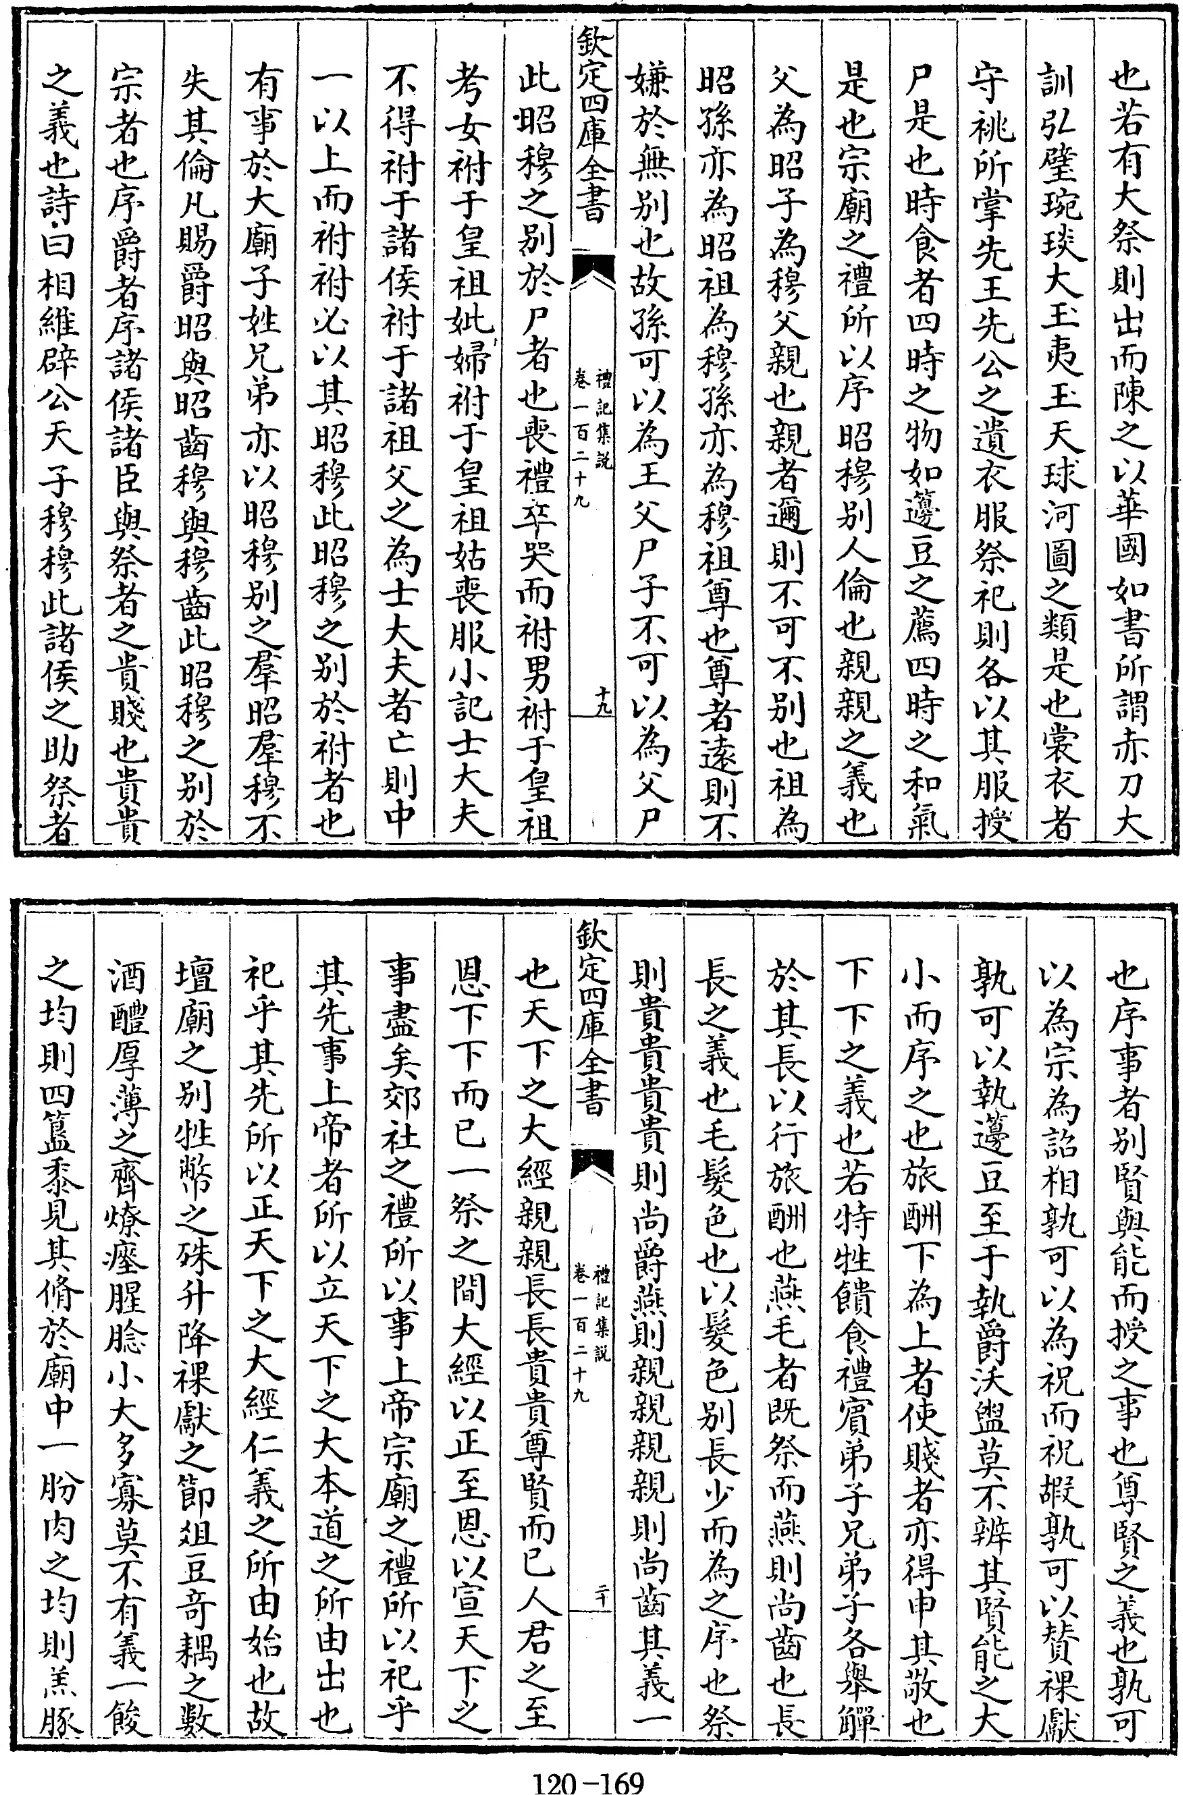 也若有大祭則出而陳之以華國如書所謂赤刀大
訓弘璧琬琰大玉夷玉天球河圖之類是也裳衣者
守祧所掌先王先公之遺衣服祭祀則各以其服授
尸是也時食者四時之物如籩豆之薦四時之和氣
是也宗廟之禮所以序昭穆别人倫也親親之義也
父為昭子為穆父親也親者邇則不可不别也祖為
昭孫亦為昭祖為穆孫亦為穆祖尊也尊者逺則不
嫌於無别也故孫可以為王父尸子不可以為父尸
欽定四庫全書
禮記集說
卷一百二十九
十九
此昭穆之别於尸者也喪禮卒哭而祔男祔于皇祖
考女祔于皇祖妣婦祔于皇祖姑喪服小記士大夫
不得祔于諸侯祔于諸祖父之為士大夫者亡則中
一以上而祔祔必以其昭穆此昭穆之别於祔者也
有事於大廟子姓兄弟亦以昭穆别之羣昭羣穆不
失其倫凡賜爵昭與昭齒穆與穆齒此昭穆之别於
宗者也序爵者序諸侯諸臣與祭者之貴賤也貴貴
之義也詩曰相維辟公天子穆穆此諸侯之助祭者
也序事者别賢與能而授之事也尊賢之義也孰可
以為宗為詔相孰可以為祝而祝嘏孰可以賛祼獻
孰可以執籩豆至于執爵沃盥莫不辨其賢能之大
小而序之也旅酬下為上者使賤者亦得申其敬也
下下之義也若特牲饋食禮賓弟子兄弟子各舉觶
於其長以行旅酬也燕毛者既祭而燕則尚齒也長
長之義也毛髪色也以髪色别長少而為之序也祭
則貴貴貴貴則尚爵燕則親親親親則尚齒其義一
欽定四庫全書
禮記集說
卷一百二十九
二十
也天下之大經親親長長貴貴尊賢而已人君之至
恩下下而已一祭之間大經以正至恩以宣天下之
事盡矣郊社之禮所以事上帝宗廟之禮所以祀乎
其先事上帝者所以立天下之大本道之所由出也
祀乎其先所以正天下之大經仁義之所由始也故
壇廟之别牲幣之殊升降祼獻之節俎豆竒耦之數
酒醴厚薄之齊燎瘞腥腍小大多寡莫不有義一餕
之均則四簋黍見其脩於廟中一胙肉之均則羔豚
120-169